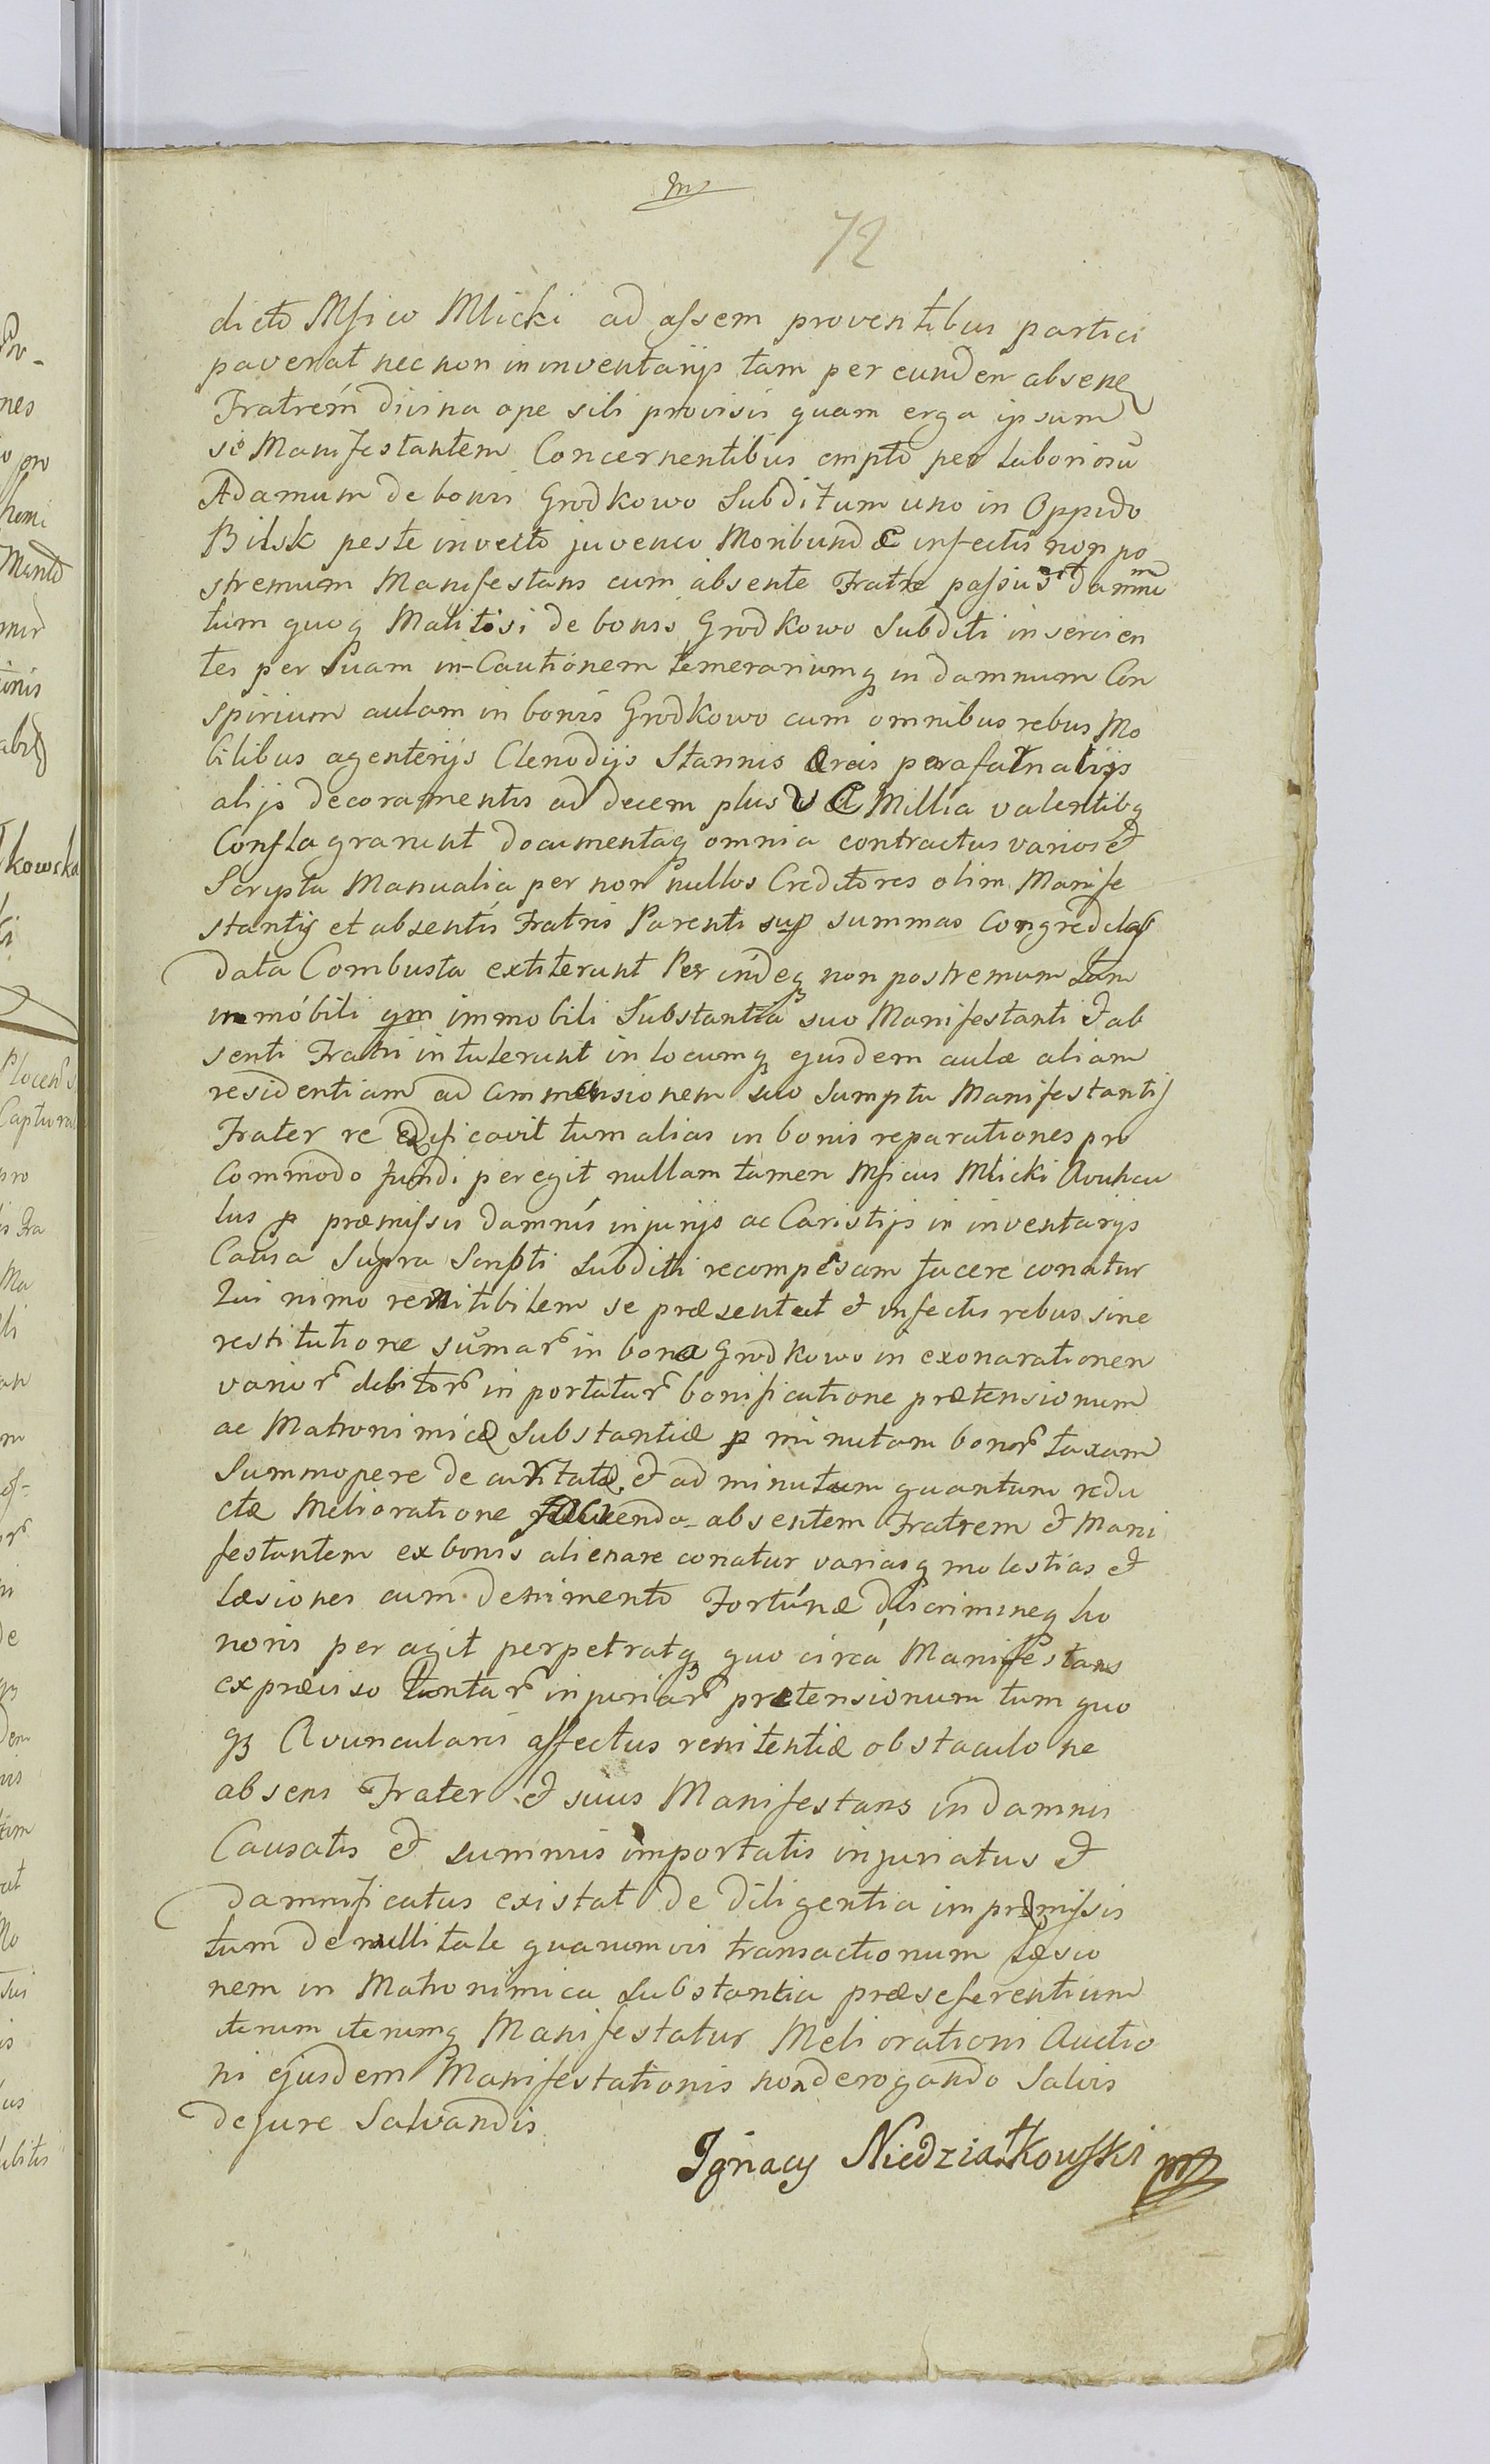 m
72
dicto Mfico Mlicki ad assem proventibus partici
paverat nec non in inventarijs tam per eundem absene
Fratrem divina ope sibi provisis quam erga ipsum
se Manifestantem Concernentibus empto per laboriosũ
Adamum de bonis Grodkowo Subditum uno in Oppido
Bilsk peste invecto juvenco Moribundæ infectis non po
stremum Manifestans cum absente Fratre passus est damnũ
tum quoq Malitiosi de bonis Grodkowo Subditi inservien
tes per Suam in-Cautionem temerariumq in damnum Con
spirium aulam in bonis Grodkowo cum omnibus rebus Mo
bilibus agenterijs Clenodijs Stannis Æreis parafarnalijs
alijs decoramentis ad decem plus Millia valentibq
Conflagrarunt documentaq omnia contractus varios et
Scripta Manualia per non nullos Creditores olim Manife
stantis et absentis Fratris Parenti sup summas Congreditas
data Combusta extiterunt Per indeq non postremum tam
in mobili qm immobili Substantia suo Manifestanti et ab
senti Fratri intulerunt in locumq ejusdem aulæ aliam
residentiam ad ammensionem suo Sumptu Manifestantis
Frater re ædificavit tum alias in bonis reparationes pro
Commodo fundi peregit nullam tamen Mficus Mlicki Avuncu
lus p præmissis damnis injurijs ac Caristijs in inventarijs
Causa Supra Scripti Subditi recompesam facere conatur
Qui nimo renitibilem se præsentat et infectis rebus sine
restitutione sumar in bona Grodkowo in exonarationem
varior debitor in portatar bonificatione prætensionum
ac Matronimicæ Substantiæ p minutam bonor taxam
Summopere de curtatæ et ad minutum quantum redu
ctæ Melioratione absentem Fratrem et Mani
festantem ex bonis alienare conatur variasq molestias et
læsiones cum detrimento Fortunæ discrimineq ho
noris per agit perpetratq quo circa Manifestans
ex præviso tantar injuriar prætensionum tum quo
q3 Avuncularis affectus renitentiæ obstaculo ne
absens Frater et suus Manifestans in damnis
Causatis et summis importatis injuriatus et
damnificatus existat de diligentia in præmissis
tum de nullitate quarumvis transactionum læsio
nem in Matronimica Substantia præseferentium
iterum iterumq Manifestatur Meliorationi Auctio
ni ejusdem Manifestationis non derogando Salvis
de jure Salvandis
Ignacy Niedziałkowski mp